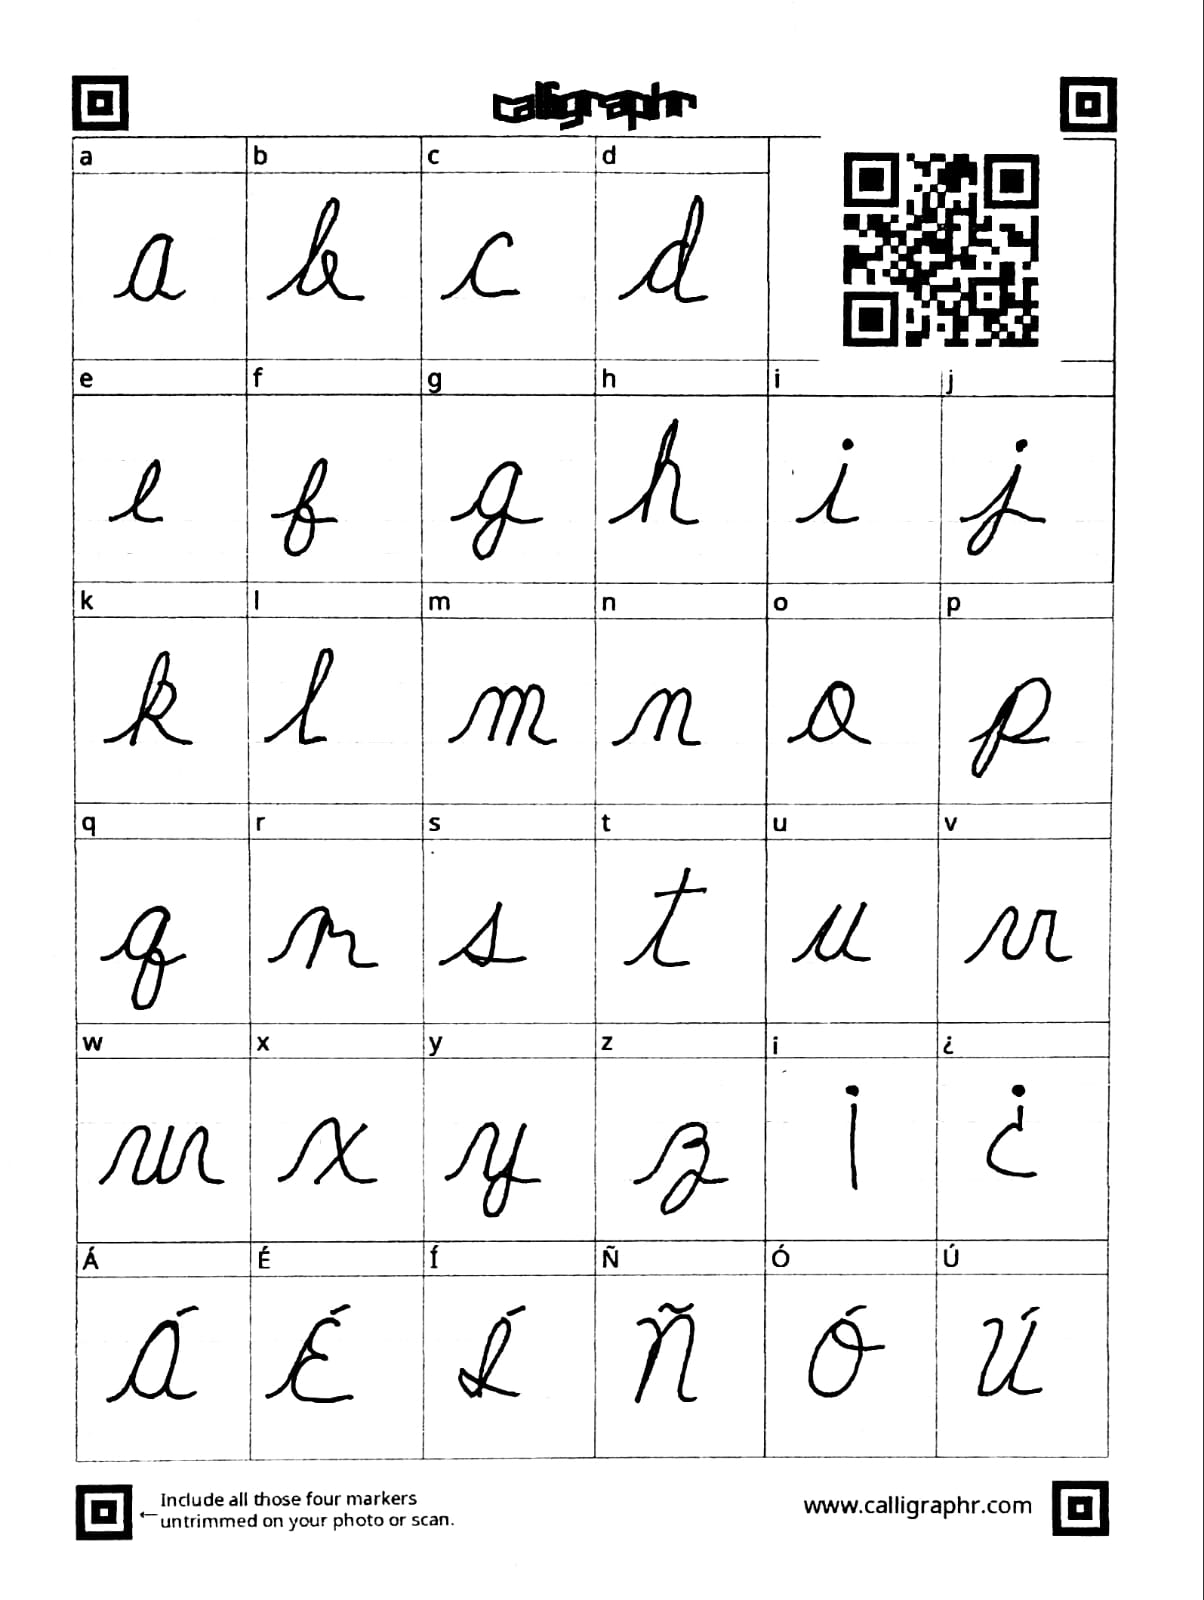 calligraphr
a b c d
a b c d
e f g h i j
e f g h i j
k l m n o p
k l m n o p
q r s t u v
q r s t u v
w x y z ¡ ¿
w x y z ¡ ¿
Á É Í Ñ Ó Ú
Á É Í Ñ Ó Ú
←Include all those four markers
untrimmed on your photo or scan.
www.calligraphr.com